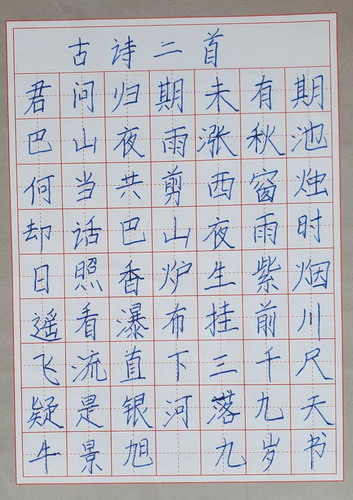 古诗二首
君问归期未有期
巴山夜雨涨秋池
何当共剪西窗烛
却话巴山夜雨时
日照香炉生紫烟
遥看瀑布挂前川
飞流直下三千尺
疑是银河落九天
牛景旭 九岁书